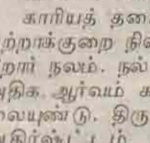 காரியத் தடை
ற்றாக்குறை நில
றார் நலம். நல்
அதிக ஆர்வம் க
லையுண்டு. திரு